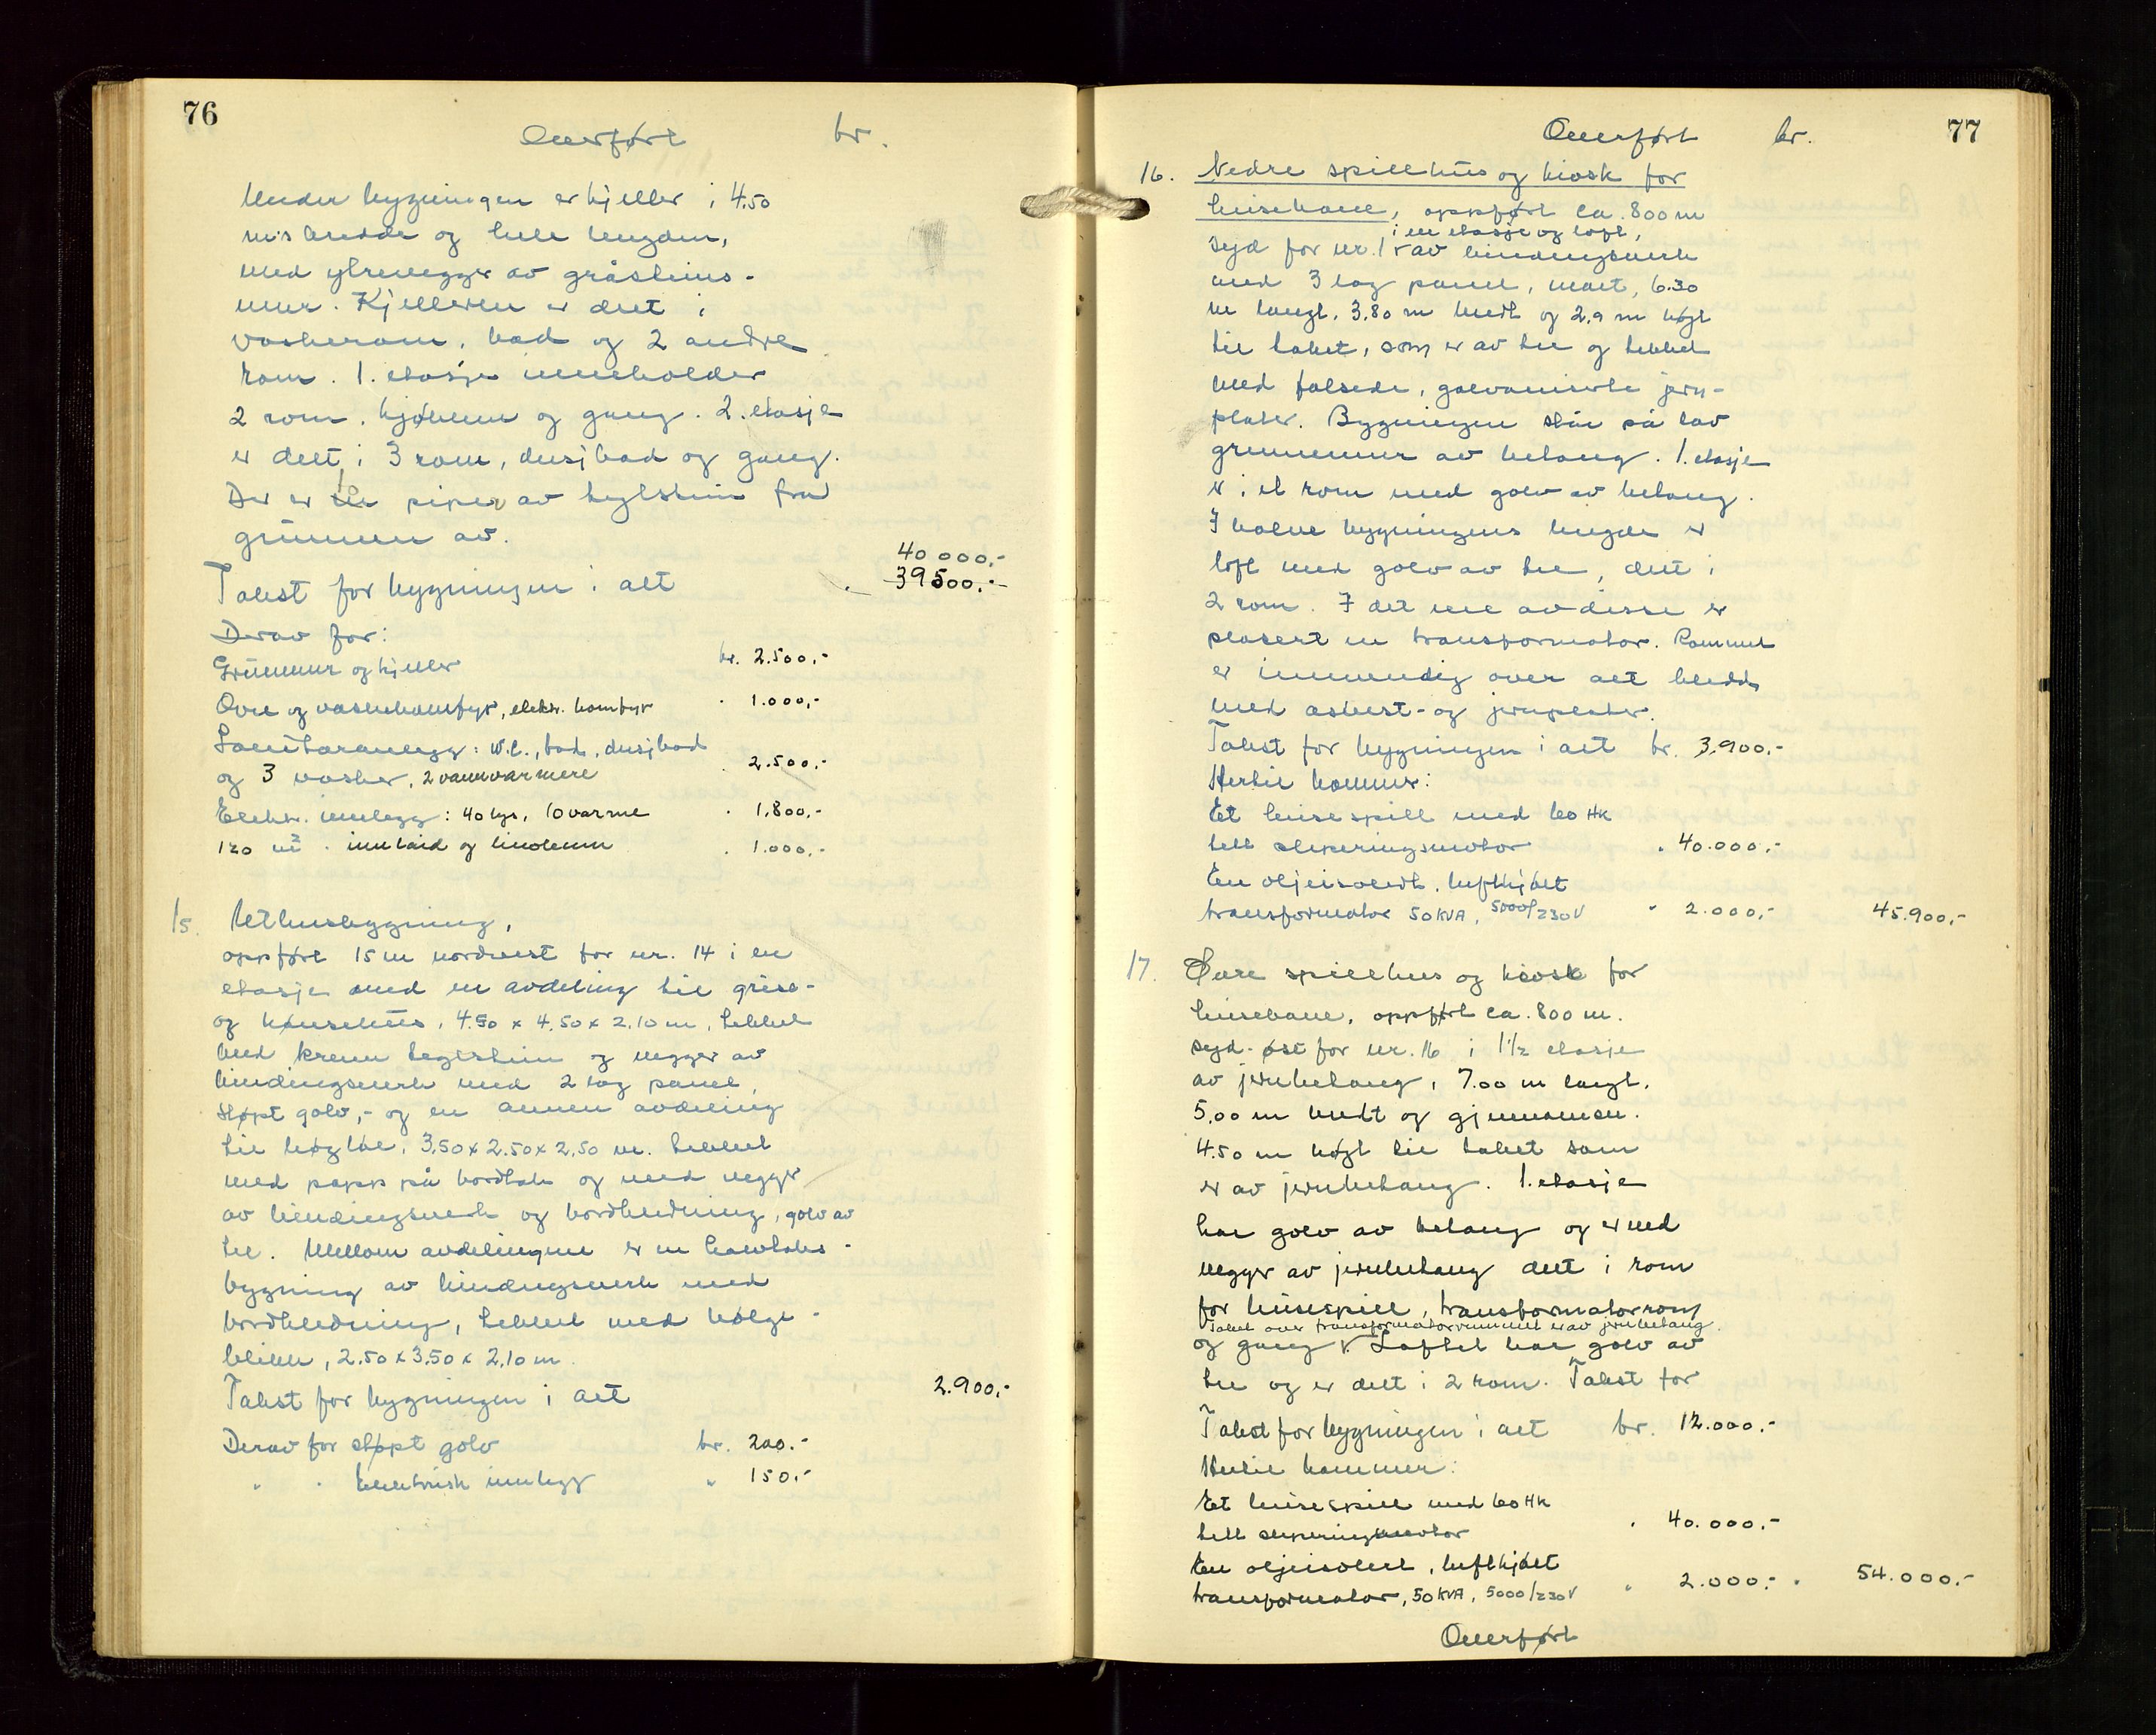 76
Overført kr.
Under bygningen er kjeller i 4,50
m's bredde og hele lengden,
med yttervegger av gråsteins-
mur. Kjelleren er delt i
vaskerom, bad og 2 andre
rom. 1. etasje inneholder
2 rom, kjøkken og gang. 2. etasje
er delt i 3 rom, dusjbad og gang.
Der er piper av teglstein fra
grunnen av.
40 000,-
Takst for bygningen i alt " 39500,-
Derav for:
Grunnmur og kjeller kr. 2.500,-
Ovne og vaskekomfyr, elektr. komfyr " 1.000,-
Sanitæranlegg: W.C., bad, dusjbad
og 3 vasker, 2 vannvarmere " 2.500,-
Elektr. innlegg: 40 lys, 10 varme " 1.800,-
120 m² innlaid og linoleum " 1.000,-
15. Uthusbygning,
oppført 15 m nordvest for nr. 14 i en
etasje med en avdeling til grise-
og hønsehus, 4.50 x 4.50 x 2.10 m, tekket
med teglstein og vegger av
bindingsverk med 2 lag panel,
støpt golv, - og en annen avdeling
til høyløe, 3,50 x 2.50 x 2,50 m. tekket
med papp på bordtak og med vegger
av bindingsverk og bordkledning, golv av
tre. Mellom avdelingene er en halvtaks-
bygning av bindingsverk med
bordkledning, tekket med bølge-
blikk, 2.50 x 3.50 x 2,10 m.
Takst for bygningen i alt 2.900,-
Derav for støpt golv kr. 200.-
" " Elektrisk innlegg " 150,-
77
Overført kr.
16. Nedre spillhus og kiosk for
heisebane, oppført ca. 800 m
i en etasje og loft,
syd for nr. 1 av bindingsverk
med 3 lag panel, malt, 6.30
m langt, 3.80 m bredt og 2,9 m høgt
til taket, som er av tre og tekket
med falsede, galvaniserte jern-
plater. Bygningen står på lav
grunnmur av betong. 1. etasje
er i et rom med golv av betong.
I halve bygningens lengde er
loft med golv av tre, delt i
2 rom. I det ene av disse er
plasert en transformator. Rommet
er innvendig over alt kledd
med asbest- og jernplater.
Takst for bygningen i alt kr. 3.900.-
Hertil kommer:
Et heisespill med 60 HK
helt sleperingsmotor " 40.000,-
En oljeisolert, luftkjølt
transformator 50 KVA, 5000/230V " 2.000,- 45.900,-
17. Øvre spillhus og kiosk for
heisebane, oppført ca. 800 m.
syd-øst for nr. 16 i 1½ etasje
av jernbetong, 7.00 m langt,
5,00 m bredt og gjennomsn.
4.50 m høgt til taket som
er av jernbetong. 1. etasje
har golv av betong og er med
vegger av jernbetong delt i rom
for heisespill, transformatorrom
Taket over transformatorrommet er av jernbetong.
og gang. Loftet har golv av
tre og er delt i 2 rom. Takst for
Takst for bygningen i alt kr. 12.000.-
Hertil kommer:
Et heisespill med 60 HK
helt sleperingsmotor " 40.000,-
En oljeisolert, luftkjølt
transformator, 50 KVA, 5000/230V " 2.000,- " 54.000,-
Overført